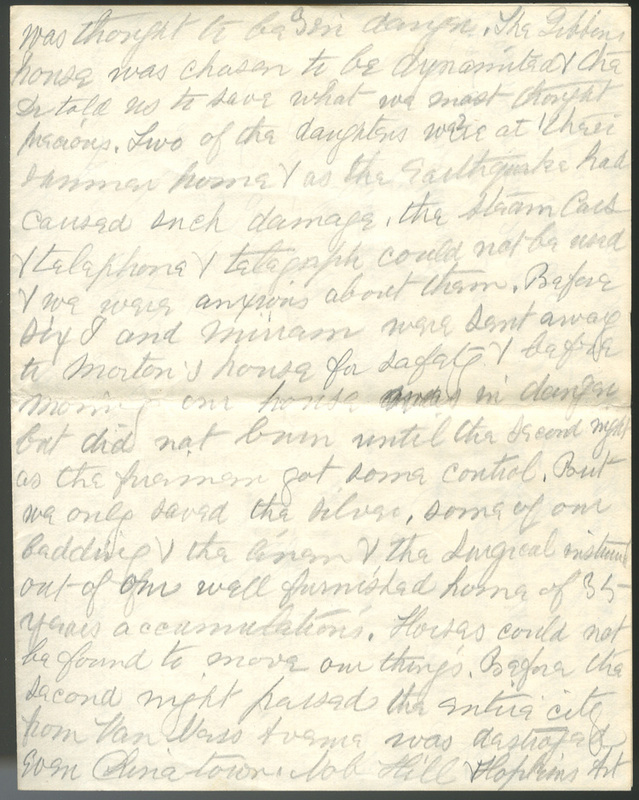 was thought to be in danger. The Gibbons
house was chosen to be dynamited & the
Dr told us to save what we most thought
precious. Two of the daughters were at their
summer home & as the Earthquake had
caused such damage, the steam Cars
& telephone & telegraph could not be used
& we were anxious about them. Before
six I and Miriam were sent away
to Morton's house for safety & before
morning our house was in danger
but did not burn until the second night
as the firemen got some control. But
we only saved the silver, some of our
bedding & the linen & the Surgical instrum
out of our well furnished home of 35
years accumulations. Horses could not
be found to move our things. Before the
second night passed the entire city
from Van Ness Avenue was destroyed
even China town. Nob Hill & Hopkins Art